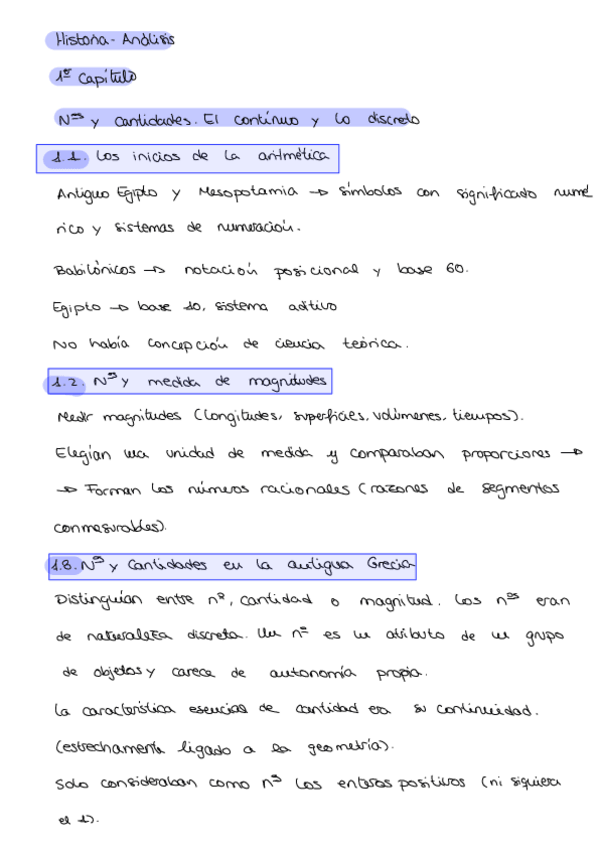 Historia - Análisis
1er Capítulo
Nos y cantidades. El continuo y lo discreto
1.1. Los inicios de la aritmética
Antiguo Egipto y Mesopotamia → símbolos con significado numé
rico y sistemas de numeración.
Babilónicos → notación posicional y base 60.
Egipto → base 10, sistema aditivo
No había concepción de ciencia teórica.
1.2. Nos y medida de magnitudes
Medir magnitudes (longitudes, superficies, volúmenes, tiempos).
Elegían una unidad de medida y comparaban proporciones →
→ Forman los números racionales (razones de segmentos
conmesurables).
1.3. Nos y Cantidades en la antigua Grecia
Distinguían entre nº, cantidad o magnitud. Los nos eran
de naturaleza discreta. Un nº es un atributo de un grupo
de objetos y carece de autonomía propia.
La característica esencial de cantidad era su continuidad.
(estrechamente ligado a la geometría).
Solo consideraban como nos los enteros positivos (ni siquiera
el 1).